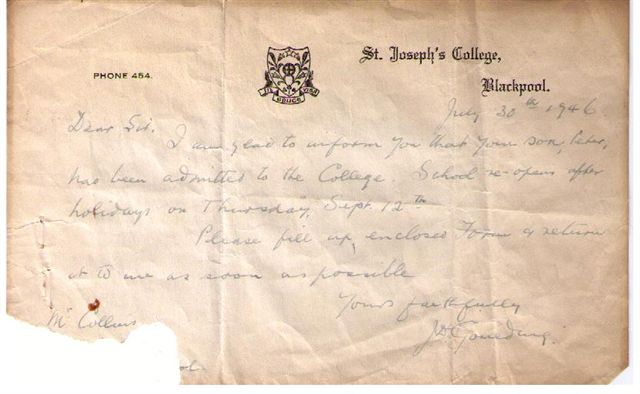 PHONE 454.
St. Joseph's College,
Blackpool.
July 30th 1946.
Dear Sir.
I am glad to inform you that your son, Peter,
has been admitted to the College. School re-opens after
holidays on Thursday, Sept. 12th
Please fill up enclosed Form & return
it to me as soon as possible
Yours faithfully
Mr Collins